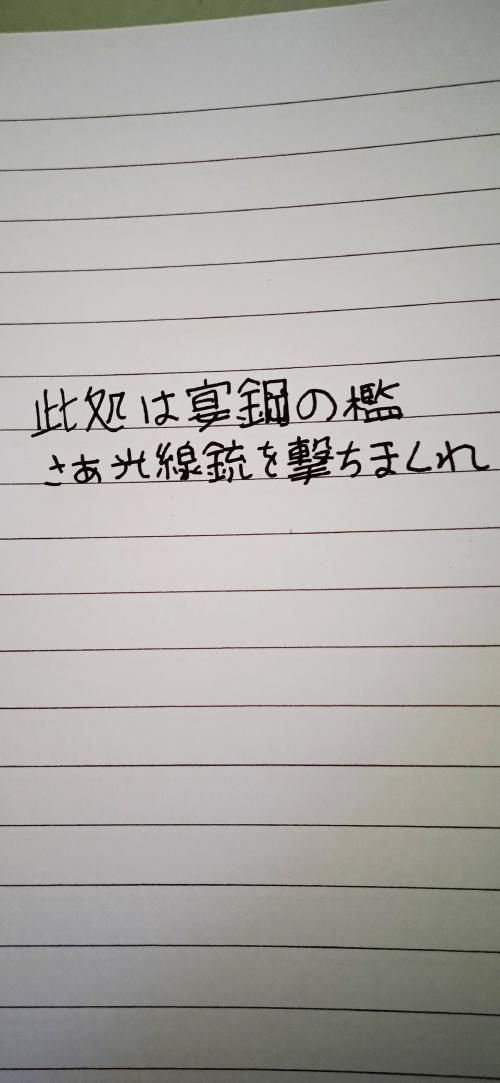 此処は宴鋼の檻
さあ光線銃を撃ちまくれ